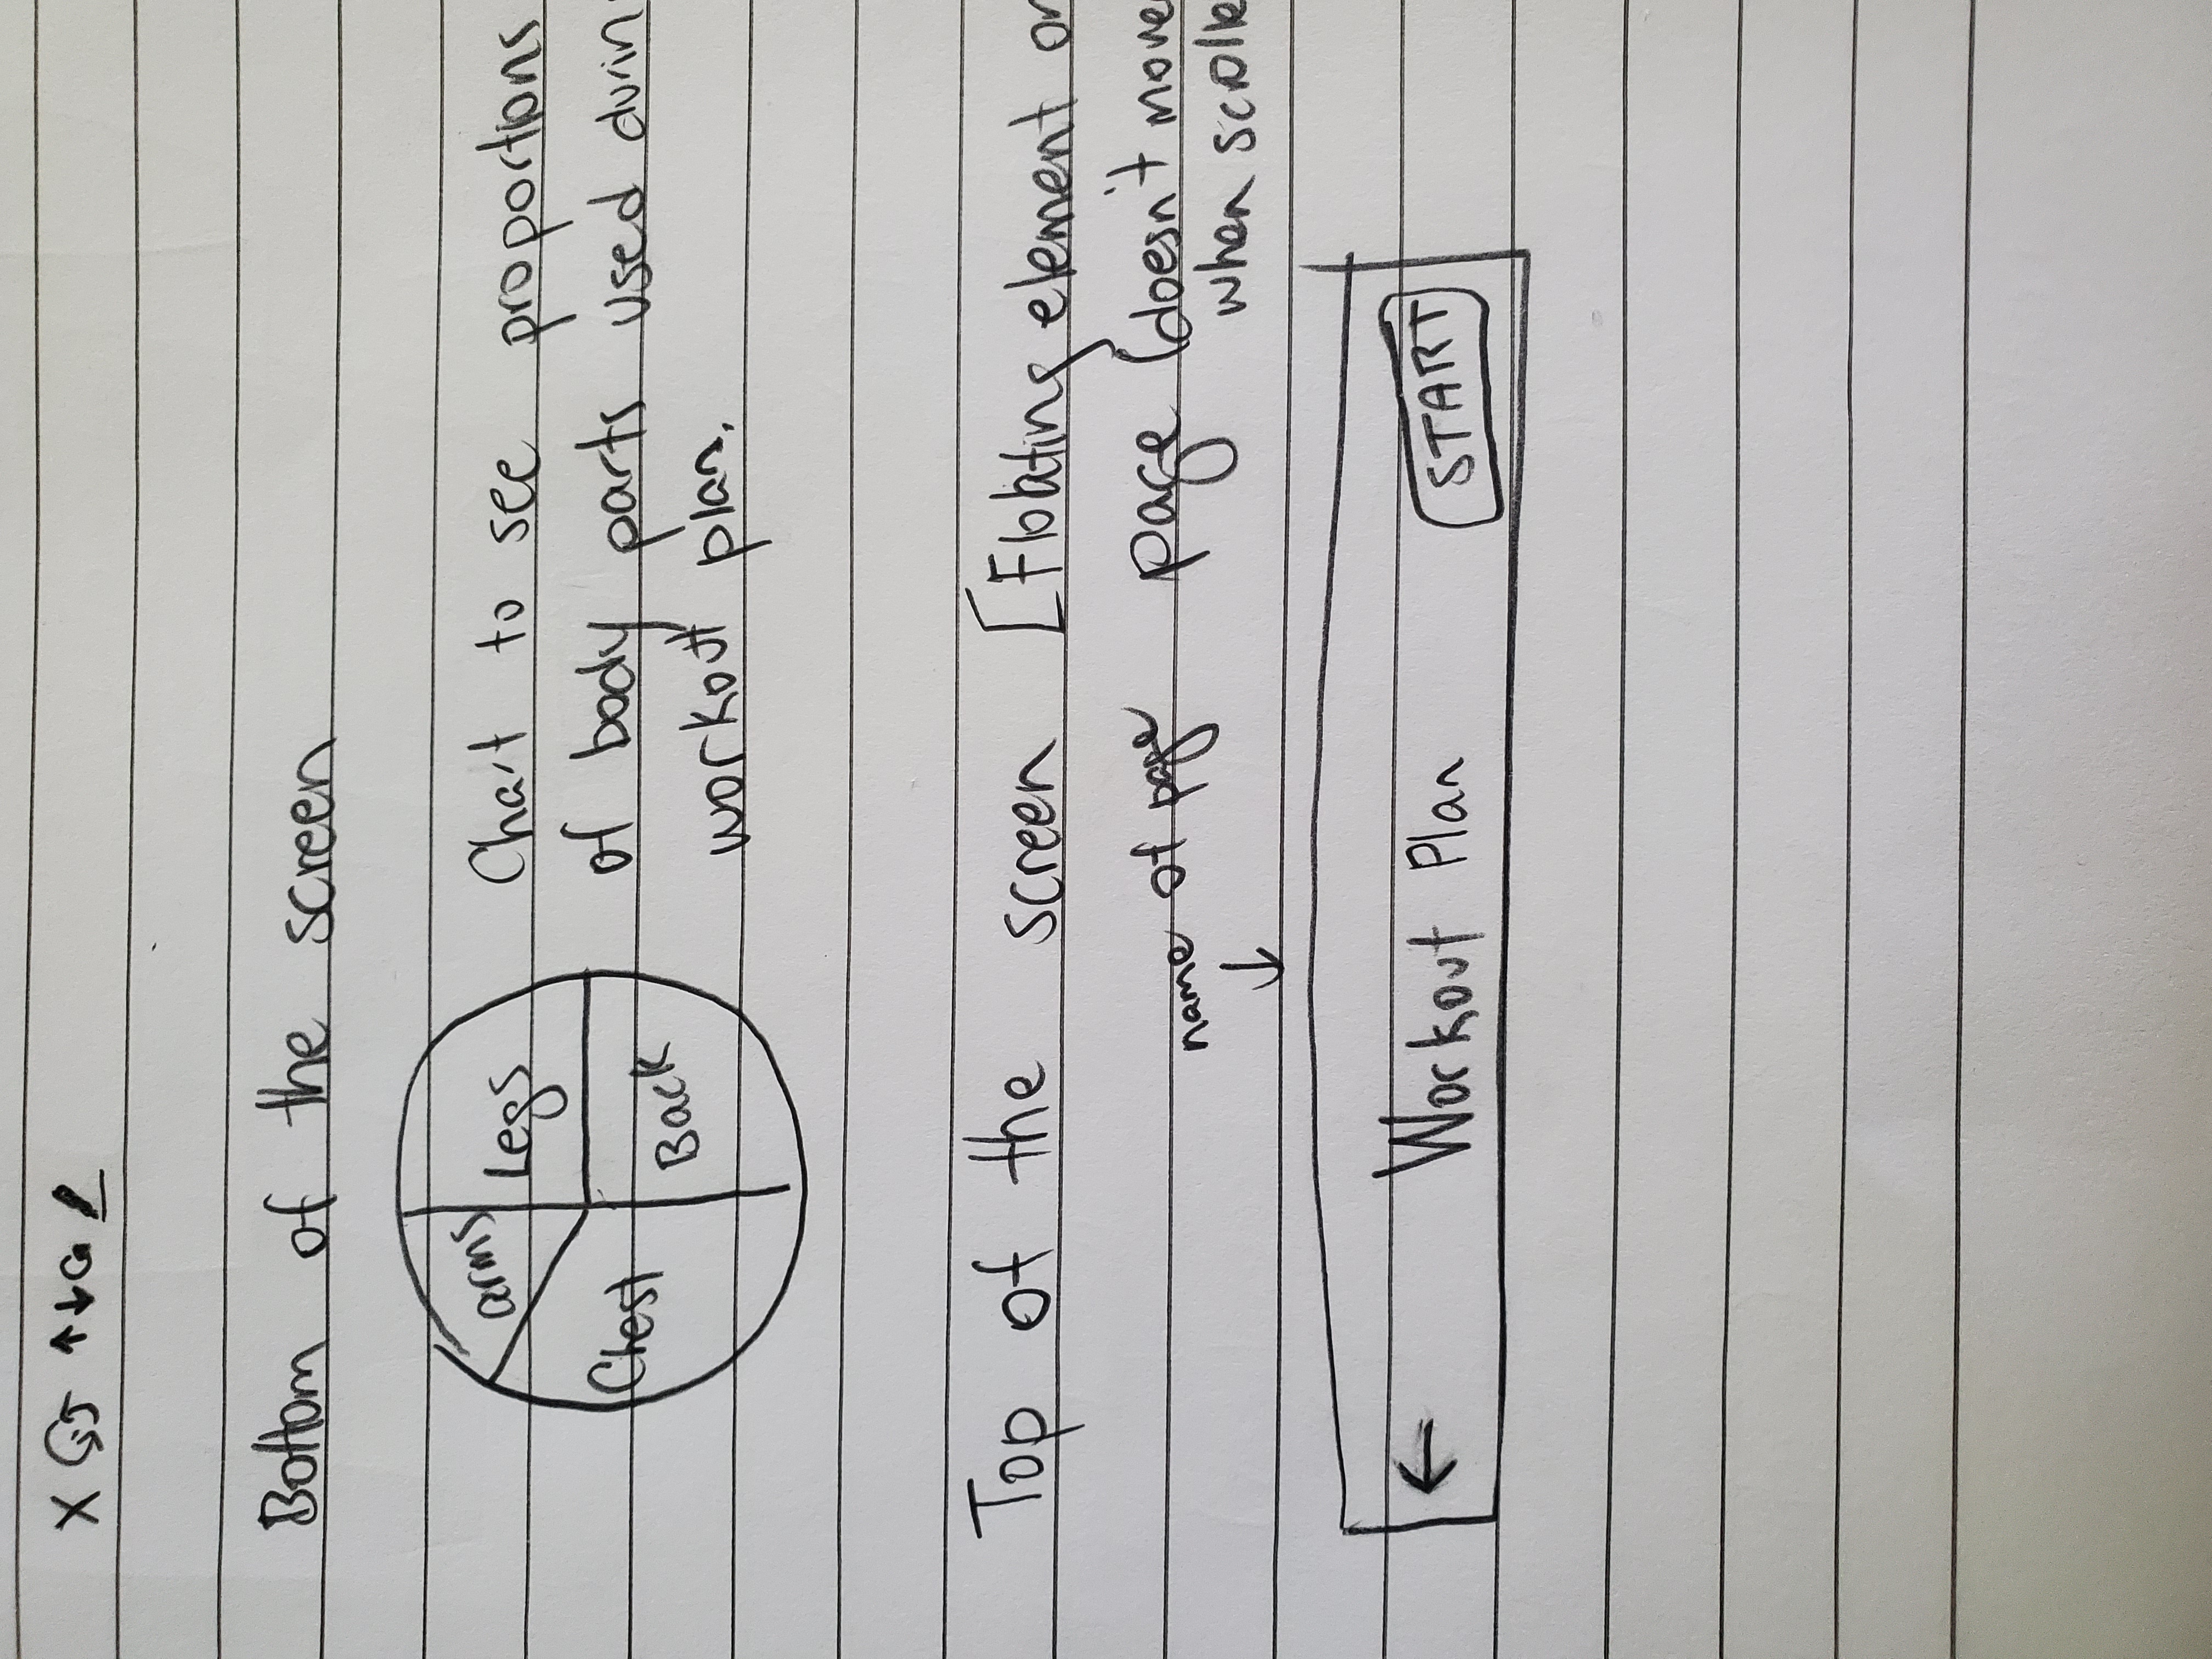 X ↑↓
Bottom of the screen
arms
Legs
Chest
Back
Chart to see proportions
of body parts used durin
workout plan.
Top of the screen [Floating element on
page (doesn't move
when scrolle
name of page
↓
← Workout Plan START